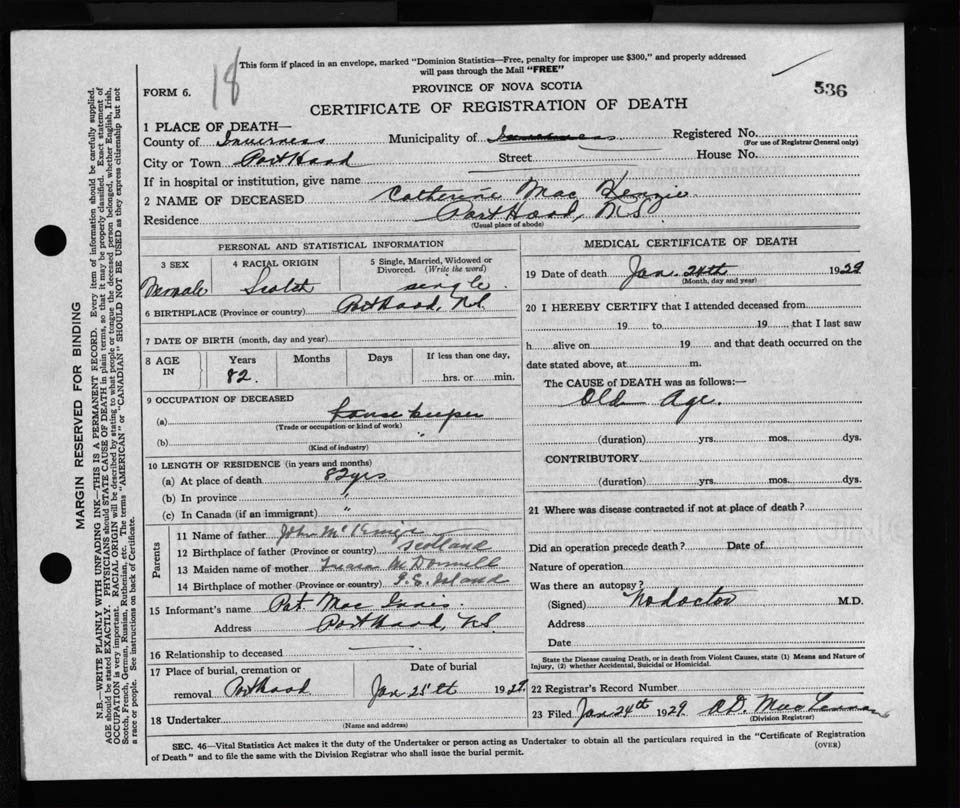 18
This form if placed in an envelope, marked "Dominion Statistics—Free, penalty for improper use $300," and properly addressed
will pass through the Mail "FREE"
536
FORM 6.
PROVINCE OF NOVA SCOTIA
CERTIFICATE OF REGISTRATION OF DEATH
1 PLACE OF DEATH—
County of Inverness Municipality of Inverness Registered No.
(For use of Registrar General only)
City or Town Port Hood Street House No.
If in hospital or institution, give name
2 NAME OF DECEASED Catherine Mac Kenzie
Residence Port Hood, N.S.
(Usual place of abode)
PERSONAL AND STATISTICAL INFORMATION
3 SEX 4 RACIAL ORIGIN 5 Single, Married, Widowed or Divorced. (Write the word)
Female Scotch single
6 BIRTHPLACE (Province or country) Port Hood, N.S.
7 DATE OF BIRTH (month, day and year)
8 AGE IN Years Months Days If less than one day,
82. hrs. or min.
9 OCCUPATION OF DECEASED
(a) house keeper
(Trade or occupation or kind of work)
(b) "
(Kind of industry)
10 LENGTH OF RESIDENCE (in years and months)
(a) At place of death 82 yrs
(b) In province "
(c) In Canada (if an immigrant) "
Parents
11 Name of father John Mc
12 Birthplace of father (Province or country) Scotland
13 Maiden name of mother McDonnell
14 Birthplace of mother (Province or country) Island
15 Informant's name Pat Mac Innis
Address Port Hood, N.S.
16 Relationship to deceased
17 Place of burial, cremation or removal Port Hood
Date of burial
Jan 25th 1929.
18 Undertaker
(Name and address)
MEDICAL CERTIFICATE OF DEATH
19 Date of death Jan. 24th 1929
(Month, day and year)
20 I HEREBY CERTIFY that I attended deceased from
19 to 19, that I last saw
h alive on 19 and that death occurred on the
date stated above, at m.
The CAUSE of DEATH was as follows:—
Old Age.
(duration) yrs. mos. dys.
CONTRIBUTORY
(duration) yrs. mos. dys.
21 Where was disease contracted if not at place of death?
Did an operation precede death? Date of
Nature of operation
Was there an autopsy?
(Signed) No doctor M.D.
Address
Date
State the Disease causing Death, or in death from Violent Causes, state (1) Means and Nature of
Injury, (2) whether Accidental, Suicidal or Homicidal.
22 Registrar's Record Number
23 Filed Jan 24th 1929 A.D. MacLennan
(Division Registrar)
SEC. 46—Vital Statistics Act makes it the duty of the Undertaker or person acting as Undertaker to obtain all the particulars required in the "Certificate of Registration
of Death" and to file the same with the Division Registrar who shall issue the burial permit.
(OVER)
MARGIN RESERVED FOR BINDING
N.B.—WRITE PLAINLY WITH UNFADING INK—THIS IS A PERMANENT RECORD. Every item of information should be carefully supplied.
AGE should be stated EXACTLY. PHYSICIANS should STATE CAUSE OF DEATH in plain terms, so that it may be properly classified. Exact statement of
OCCUPATION is very important. RACIAL ORIGIN will be described by stating to what people or tongue the deceased person belonged, whether English, Irish,
Scotch, French, German, Russian, Ruthenian, etc. The terms "AMERICAN" or "CANADIAN" SHOULD NOT BE USED as they express citizenship but not
a race or people. See instructions on back of Certificate.